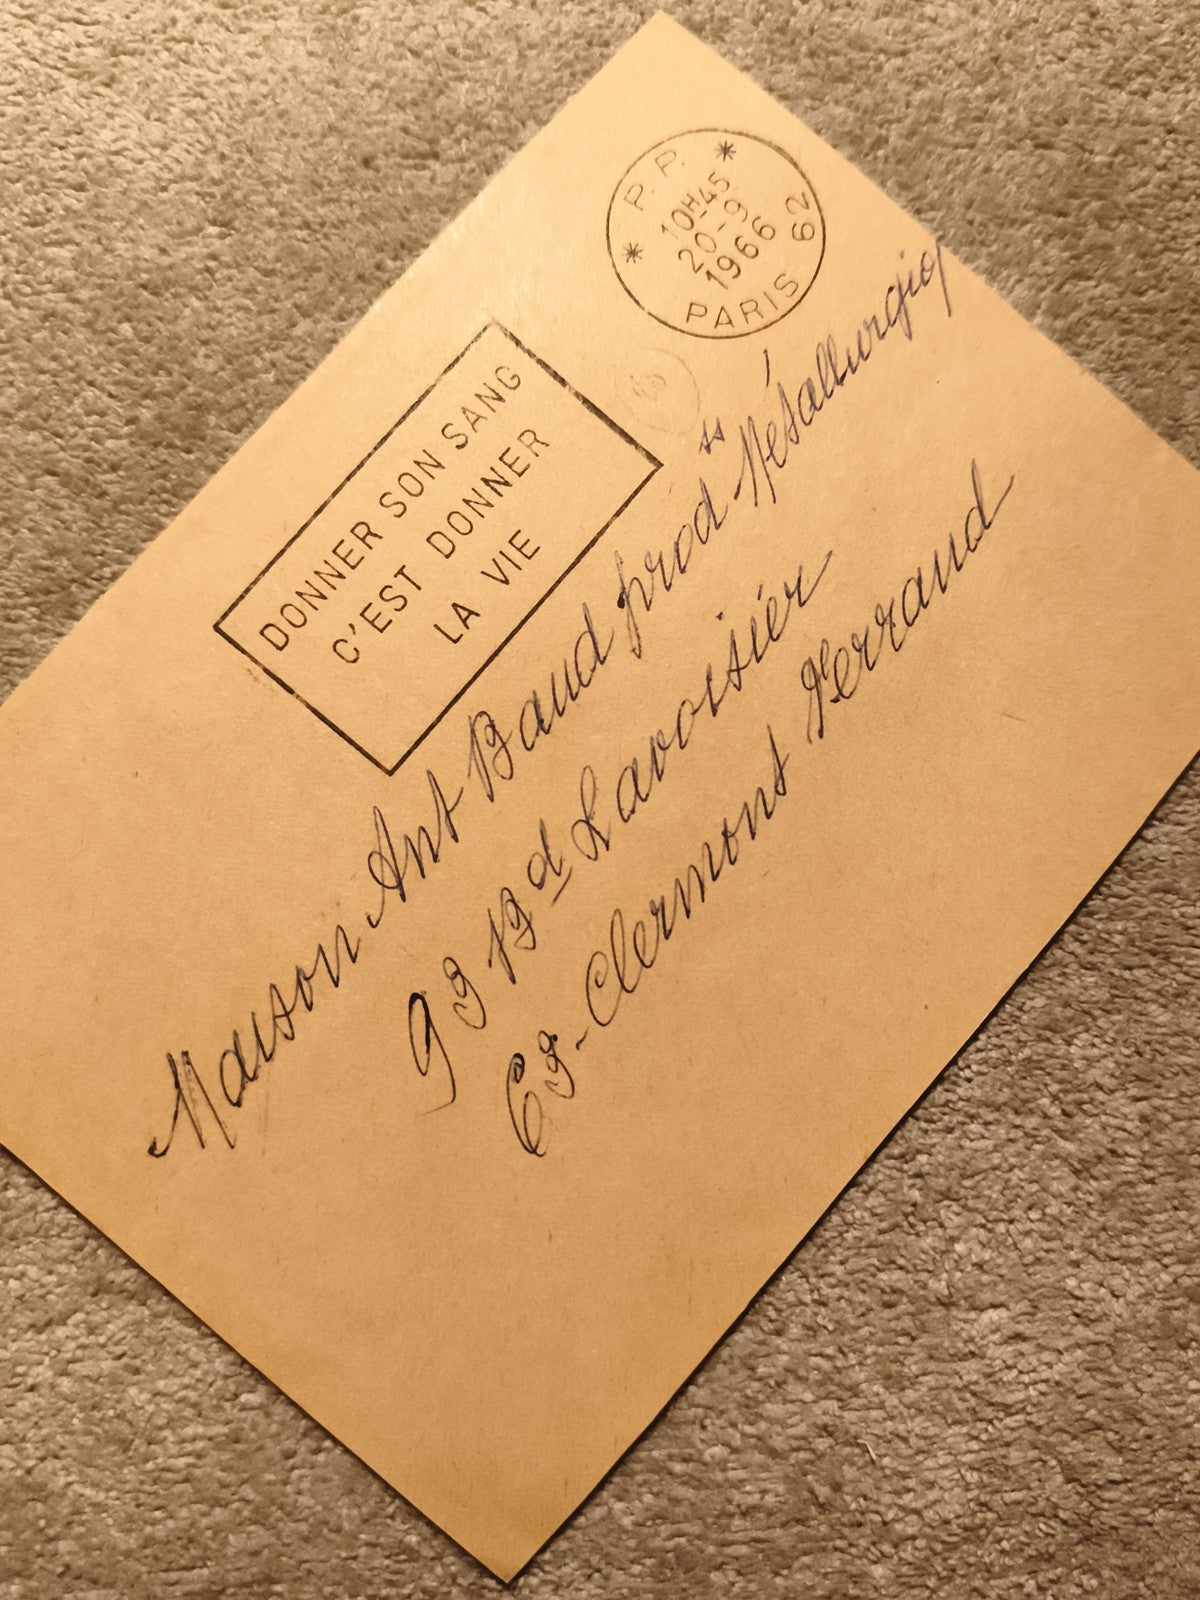 P. P.
10H45
20-9
1966
PARIS 62
DONNER SON SANG
C'EST DONNER
LA VIE
Maison Ant Baud prodts Métallurgiq
93 Bd Lavoisier
63-Clermont Ferrand